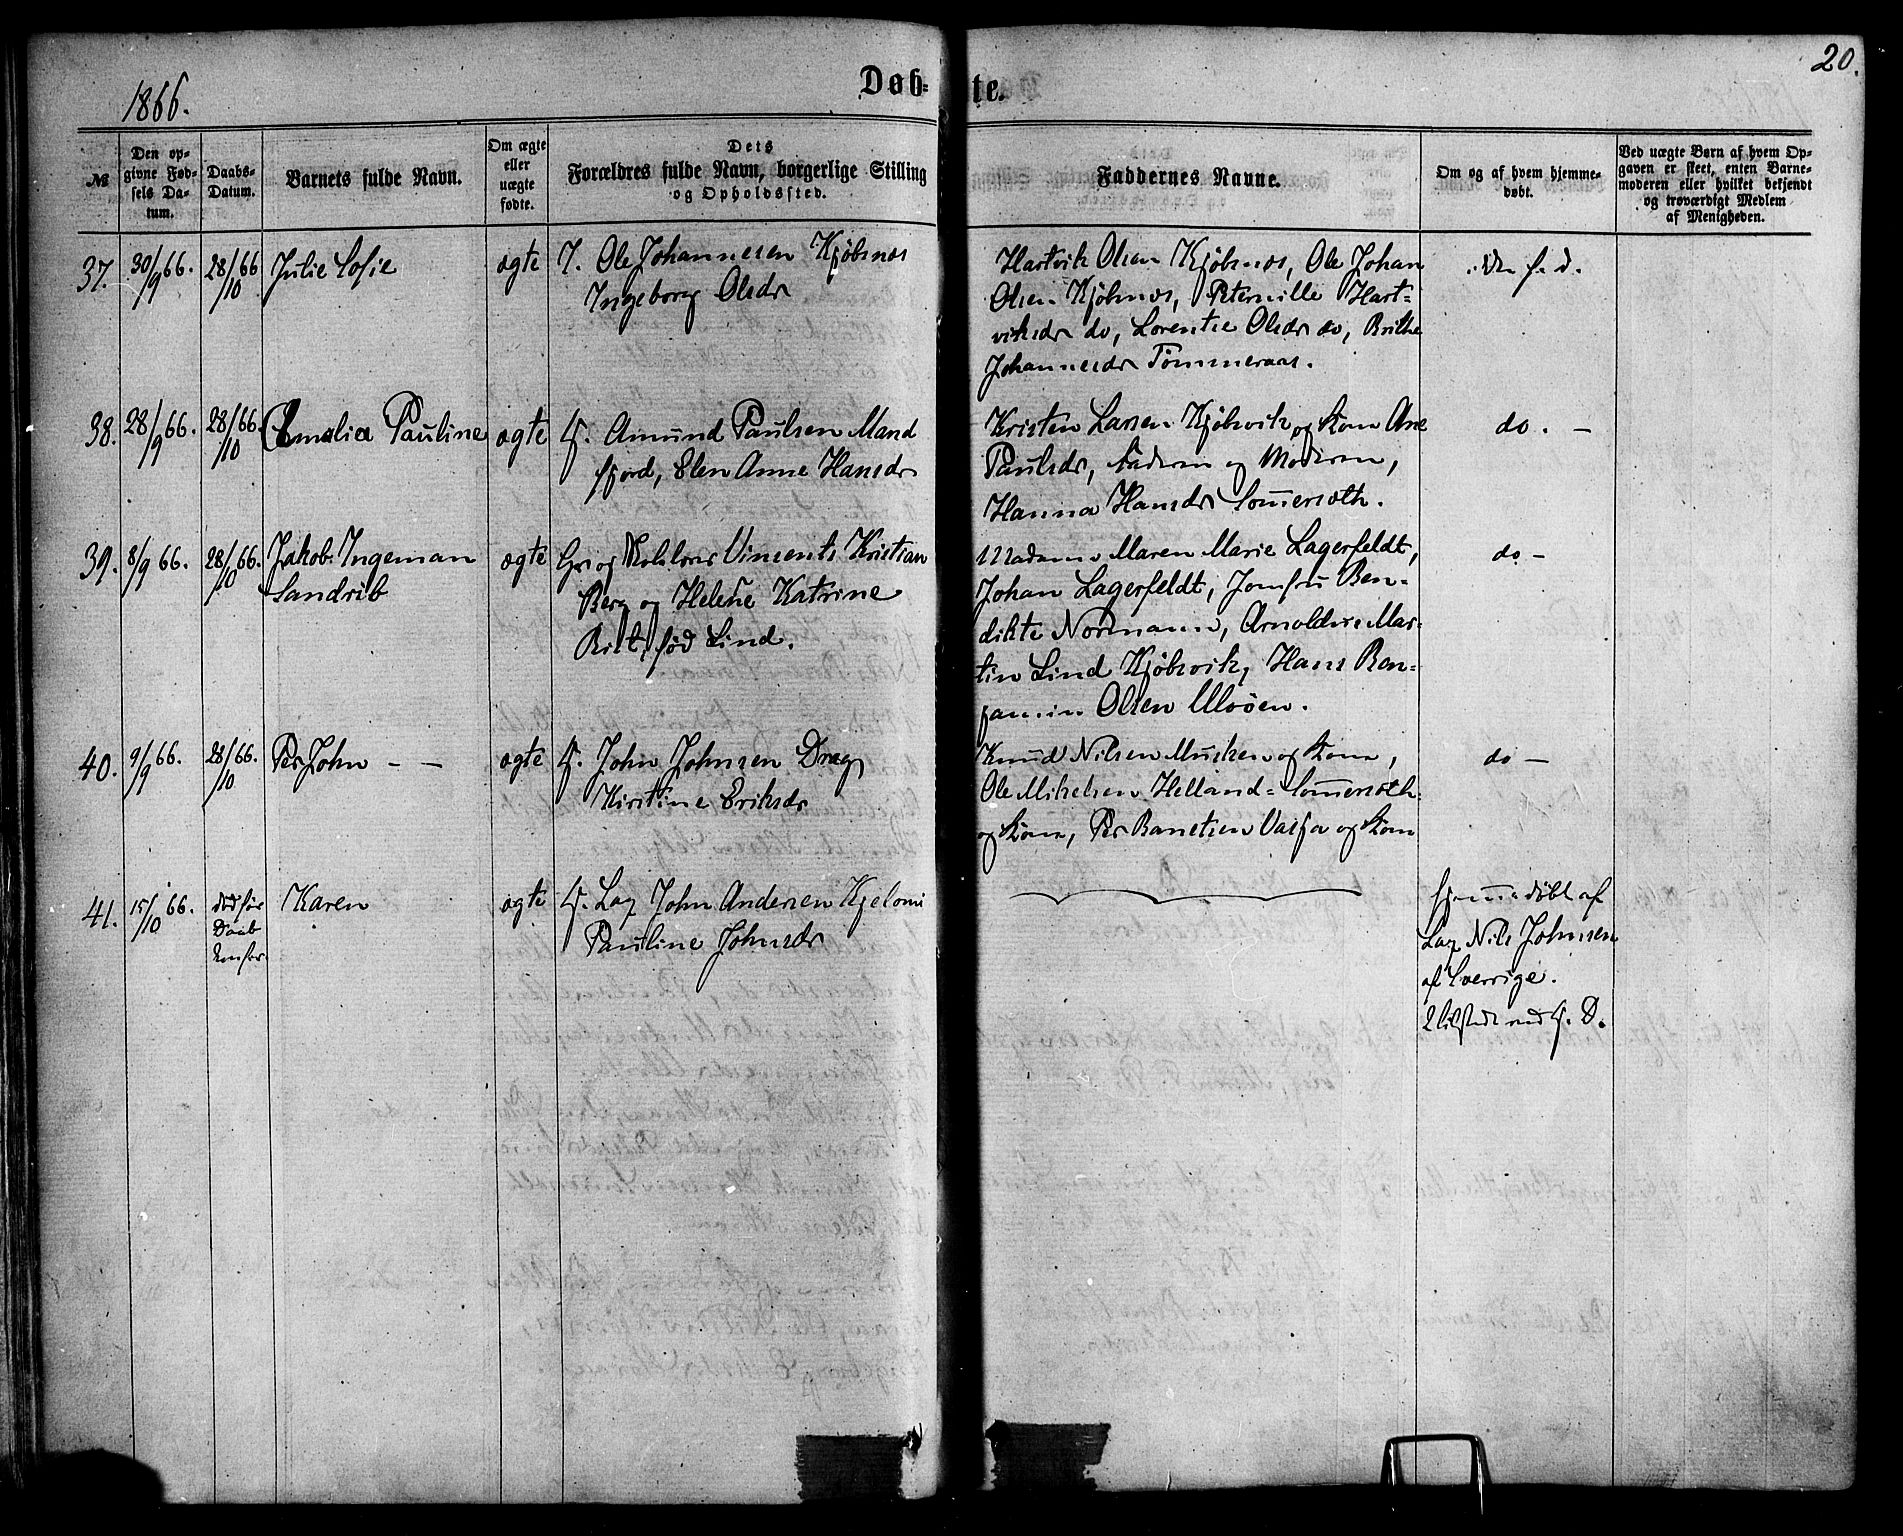 1866.
Døb-
te.
20.
№
Den op-
givne Fød-
sels Da-
tum.
Daabs-
Datum.
Barnets fulde Navn.
Om ægte
eller
uægte
fødte.
Dets
Forældres fulde Navn, borgerlige Stilling
og Opholdssted.
Faddernes Navne.
Om og af hvem hjemme-
døbt.
Ved uægte Børn af hvem Op-
gaven er skeet, enten Barne-
moderen eller hvilket bekjendt
og troværdigt Medlem
af Menigheden.
37.
30/9 66.
28/10 66
Julie Sofie
ægte
Ole Johannesen Kjøbsnæs
Ingeborg Olsdr
Hartvik Olsen Kjøbsnæs, Ole Johan
Olsen Kjøbsnæs, Peternille Hart-
viksdr do, Lorentse Olsdr do, Brithe
Johannesdr Tømmeraas.
f. d.
38.
28/9 66.
28/10 66.
Emalia Pauline
ægte
Amund Paulsen Mand
fjord, Elen Anne Hansdr
Kristen Larsen Kjøbsvik og Kone Ane
Paulsdr, Faderen og Moderen,
Hanna Hansdr Somersæth.
do. -
39.
8/9 66.
28/10 66.
Jakob Ingeman
Sandrib
ægte
Vincents Kristian
Berg og Helene Katrine
fød Lind.
Madame Maren Marie Lagerfeldt,
Johan Lagerfeldt, Jomfru Ben-
dikte Normann, Arnoldus Mar-
tin Lind Kjøbsvik, Hans Ben-
jamin Olsen
do -
40.
9/9 66.
28/10 66.
Per John - -
ægte
John Johnsen Drag
Kirstine Eriksdr
Knud Nilsen Musken og Kone,
Ole Mikelsen Helland- Somersæth
og Kone, Per Banetsen og Kone
do -
41.
15/10 66.
død før
Daab
Karen
ægte
Lap John Andersen Kjelomi
Pauline Johnsdr
hjemmedøbt af
Lap Nils Johnsen
af Sverrige.
D.